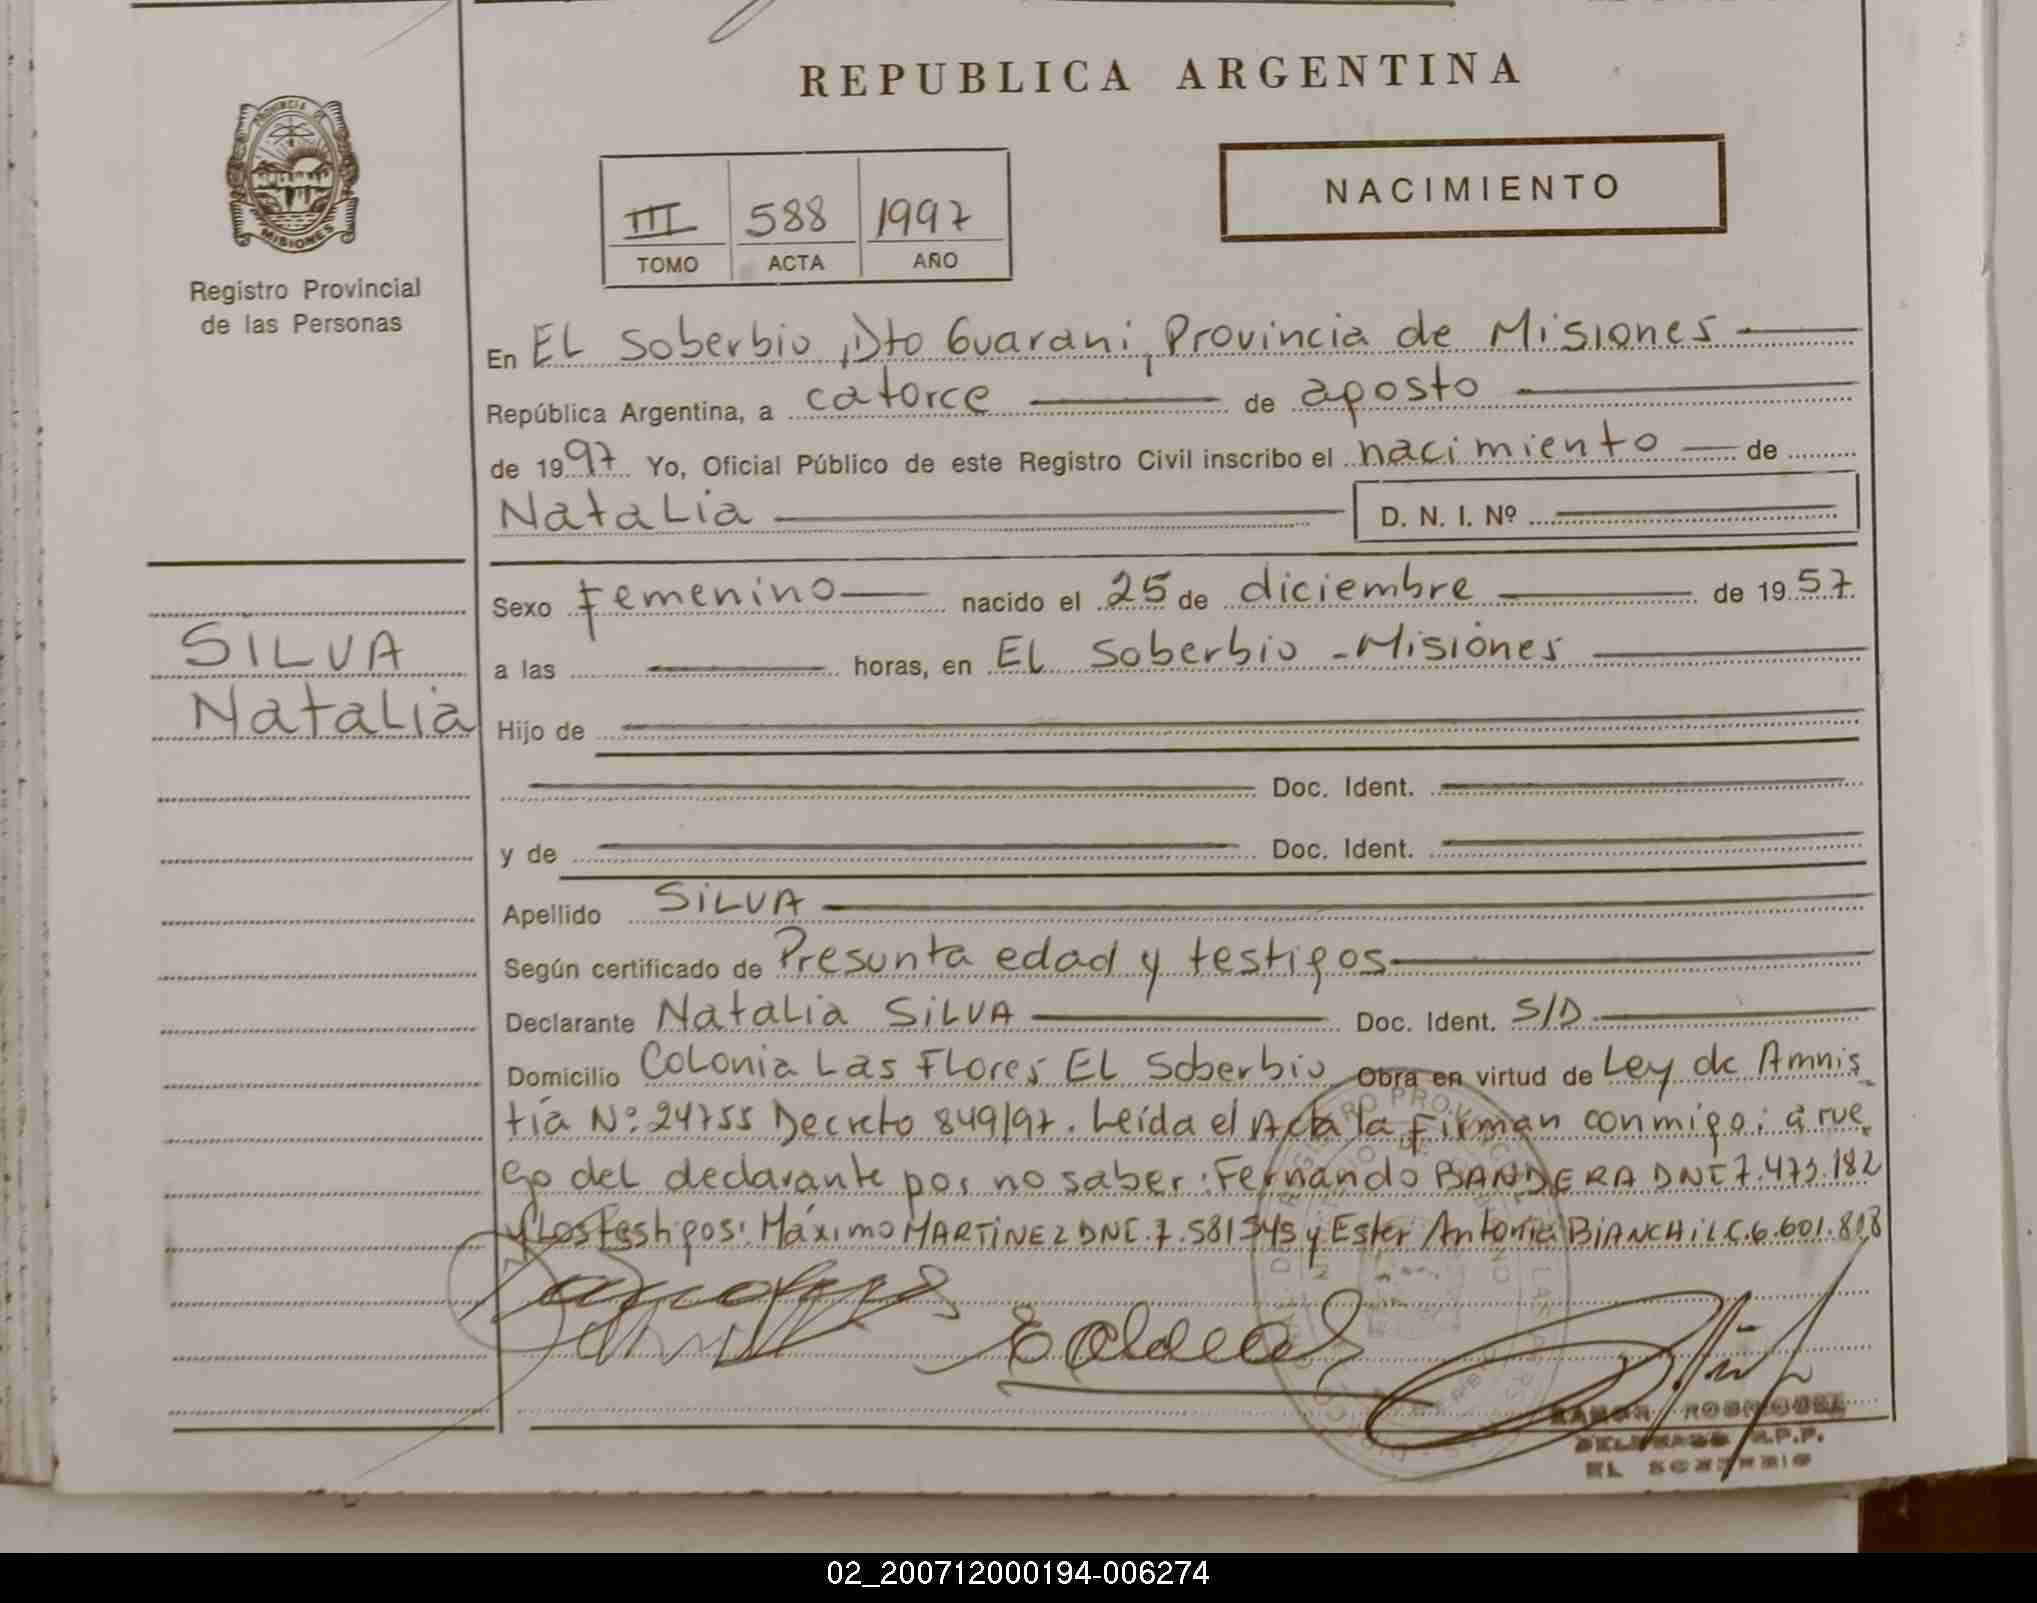 REPUBLICA ARGENTINA
PROVINCIA DE
MISIONES
Registro Provincial
de las Personas
NACIMIENTO
III 588 1997
TOMO ACTA AÑO
En EL Soberbio, Dto Guarani, Provincia de Misiones
República Argentina, a catorce de agosto
de 1997 Yo, Oficial Público de este Registro Civil inscribo el nacimiento de
Natalia D. N. I. Nº
Sexo Femenino nacido el 25 de diciembre de 1957
SILVA
Natalia
a las horas, en EL Soberbio - Misiones
Hijo de
Doc. Ident.
y de Doc. Ident.
Apellido SILVA
Según certificado de Presunta edad y testigos
Declarante Natalia SILVA Doc. Ident. S/D
Domicilio Colonia Las Flores EL Soberbio Obra en virtud de Ley de Amnis
tía Nº 24755 Decreto 849/97. Leída el Acta la Firman conmigo: a rue
go del declarante por no saber: Fernando BANDERA DNI 7.473.182
y Los testigos: Máximo MARTINEZ DNI. 7.581545 y Ester Antonia BIANCHI L.C. 6.601.818
RAMON RODRIGUEZ
DELEGADO R.P.P.
EL SOBERBIO
02_200712000194-006274